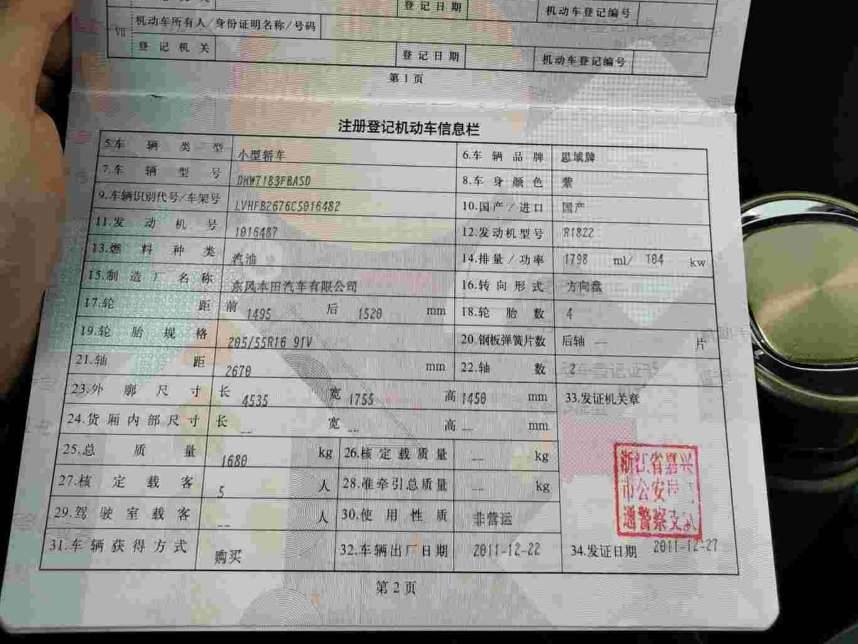 登记日期
机动车登记编号
VII
机动车所有人/身份证明名称/号码
登记机关
登记日期
机动车登记编号
第1页
注册登记机动车信息栏
5.车辆类型 小型轿车 6.车辆品牌 思域牌
7.车辆型号 DHW7183FBASD 8.车身颜色 紫
9.车辆识别代号/车架号 LVHFB2676C5016482 10.国产/进口 国产
11.发动机号 1016487 12.发动机型号 R18Z2
13.燃料种类 汽油 14.排量/功率 1798 ml/ 104 kw
15.制造厂名称 东风本田汽车有限公司 16.转向形式 方向盘
17.轮距 前 1495 后 1520 mm 18.轮胎数 4
19.轮胎规格 205/55R16 91V 20.钢板弹簧片数 后轴 -- 片
21.轴距 2670 mm 22.轴数 2
23.外廓尺寸 长 4535 宽 1755 高 1450 mm 33.发证机关章
24.货厢内部尺寸 长 -- 宽 -- 高 -- mm
25.总质量 1680 kg 26.核定载质量 -- kg
27.核定载客 5 人 28.准牵引总质量 -- kg
浙江省嘉兴
市公安
通警察支队
29.驾驶室载客 -- 人 30.使用性质 非营运
31.车辆获得方式 购买 32.车辆出厂日期 2011-12-22 34.发证日期 2011-12-27
第2页